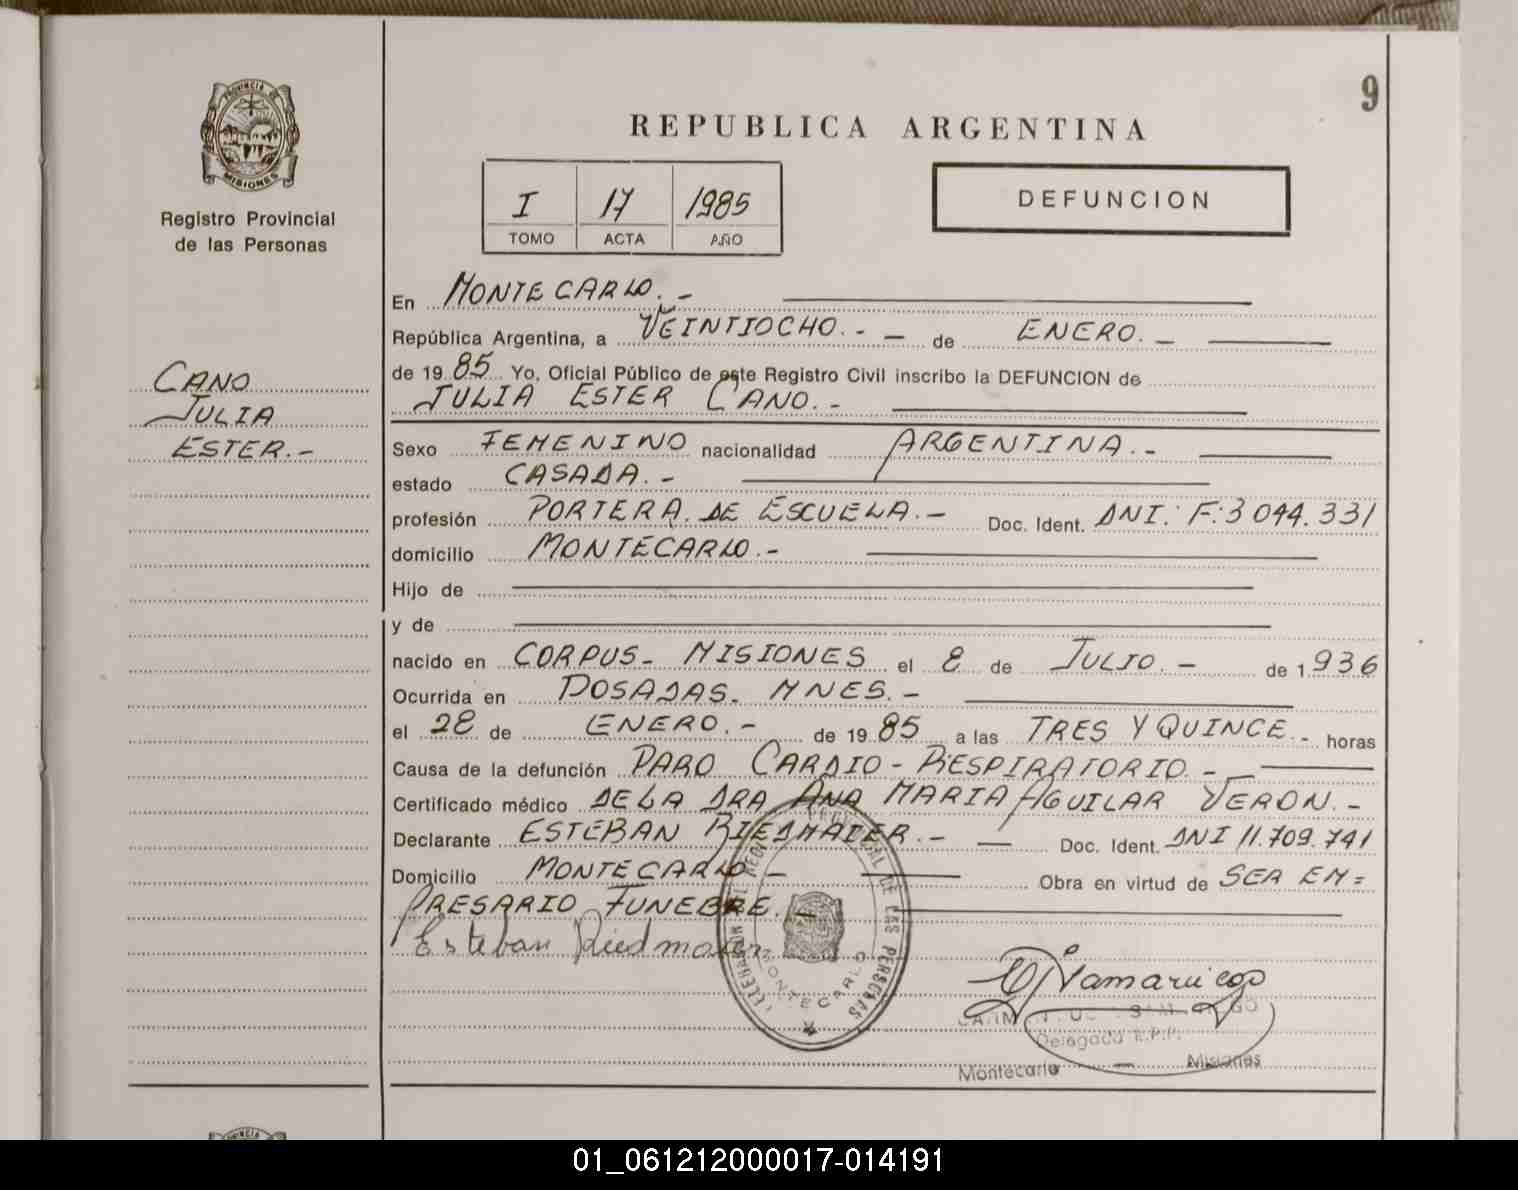 9
PROVINCIA DE
MISIONES
Registro Provincial
de las Personas
REPUBLICA ARGENTINA
I 17 1985
TOMO ACTA AÑO
DEFUNCION
CANO
JULIA
ESTER.-
En MONTECARLO.-
República Argentina, a VEINTIOCHO.- - de ENERO. -
de 19 85 Yo, Oficial Público de este Registro Civil inscribo la DEFUNCION de
JULIA ESTER CANO.-
Sexo FEMENINO nacionalidad ARGENTINA.-
estado CASADA.-
profesión PORTERA. DE ESCUELA.- Doc. Ident. DNI: F:3 044.331
domicilio MONTECARLO.-
Hijo de
y de
nacido en CORPUS- MISIONES el 8 de JULIO.- de 1936
Ocurrida en POSADAS- MNES.-
el 28 de ENERO.- de 19 85 a las TRES Y QUINCE.- horas
Causa de la defunción PARO CARDIO-RESPIRATORIO.-
Certificado médico DE LA DRA ANA MARIA AGUILAR VERON.-
Declarante ESTEBAN RIEDMAIER.- Doc. Ident. DNI 11.709.741
Domicilio MONTECARLO - Obra en virtud de SER EM=
PRESARIO FUNEBRE.-
Esteban Riedmaier
DE LAS PERSONAS
MONTECARLO
Delegada R.P.P.
Montecarlo - Misiones
01_061212000017-014191